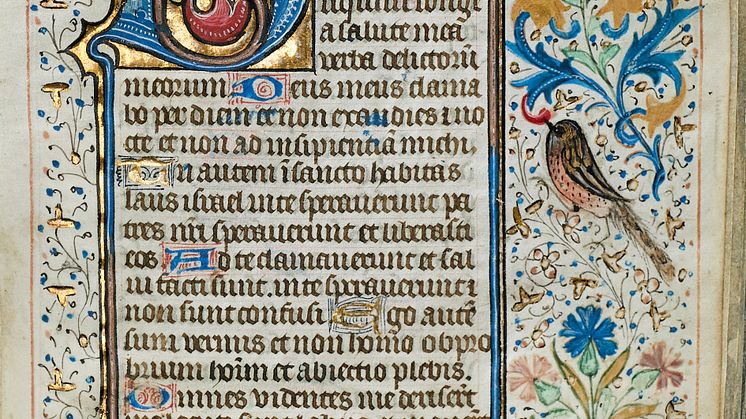 liquisti longe
a salute mea
verba delictorū
meorum Deus meus clama
bo per diem et non exaudies i no
cte et non ad insipienciā michi.
Tu autem ī sancto habitas
laus israel in te speraverunt pa
tres nr̄i speraverunt et liberasti
eos Ad te clamaverunt et sal
vi facti sunt. in te speraverunt i
non sunt confusi Ego autē
sum vermis et non homo obpro
brium hoīm et abiectio plebis.
Omnes videntes me deriserūt